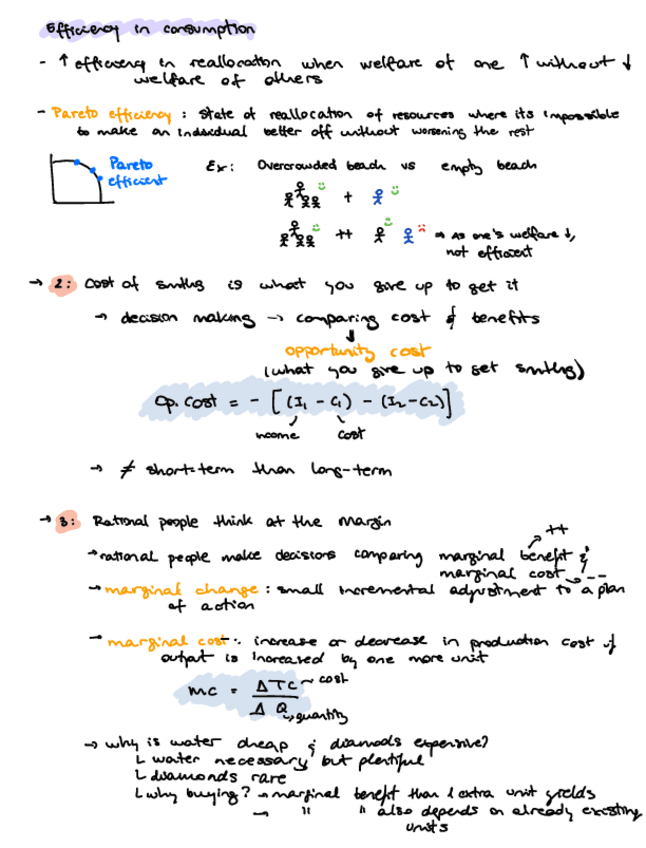 Efficiency in consumption
- ↑ efficiency in reallocation when welfare of one ↑ without ↓
welfare of others
- Pareto efficiency : state of reallocation of resources where its impossible
to make an individual better off without worsening the rest
Pareto
efficient
Ex: Overcrowded beach vs empty beach
+
++ → As one's welfare ↓,
not efficient
→ 2: Cost of smthg is what you give up to get it
→ decision making → comparing cost & benefits
↓
opportunity cost
(what you give up to get smthg)
Op. cost = - [(I₁ - C₁) - (I₂ - C₂)]
income cost
→ ≠ short-term than long-term
→ 3: Rational people think at the margin
++
→ rational people make decisions comparing marginal benefit &
marginal cost → --
→ marginal change : small incremental adjustment to a plan
of action
→ marginal cost : increase or decrease in production cost if
output is increased by one more unit
MC = ΔTC → cost
ΔQ → quantity
→ why is water cheap & diamods expensive?
↳ water necessary but plentiful
↳ diamonds rare
↳ why buying? → marginal benefit than 1 extra unit yields
→ " " also depends on already existing
units